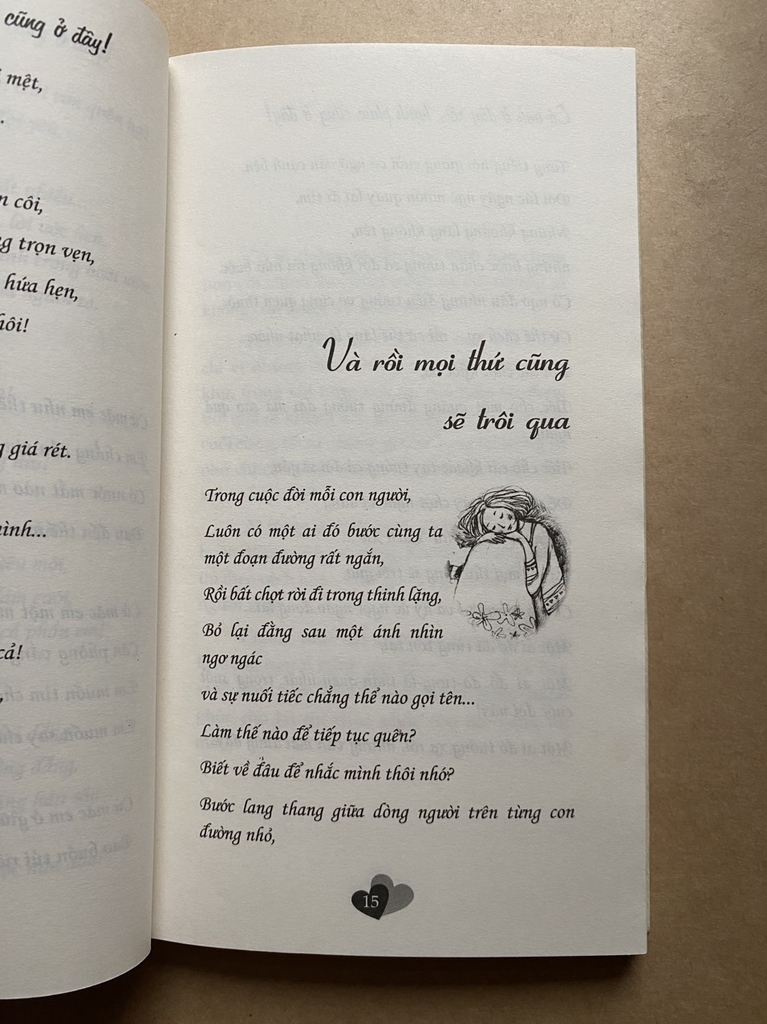 cũng ở đây!
mệt,
côi,
trọn vẹn,
hứa hẹn,
giá rét.
cả!
Và rồi mọi thứ cũng
sẽ trôi qua
Trong cuộc đời mỗi con người,
Luôn có một ai đó bước cùng ta
một đoạn đường rất ngắn,
Rồi bất chợt rời đi trong thinh lặng,
Bỏ lại đằng sau một ánh nhìn
ngơ ngác
và sự nuối tiếc chẳng thể nào gọi tên...
Làm thế nào để tiếp tục quên?
Biết về đâu để nhắc mình thôi nhớ?
Bước lang thang giữa dòng người trên từng con
đường nhỏ,
15